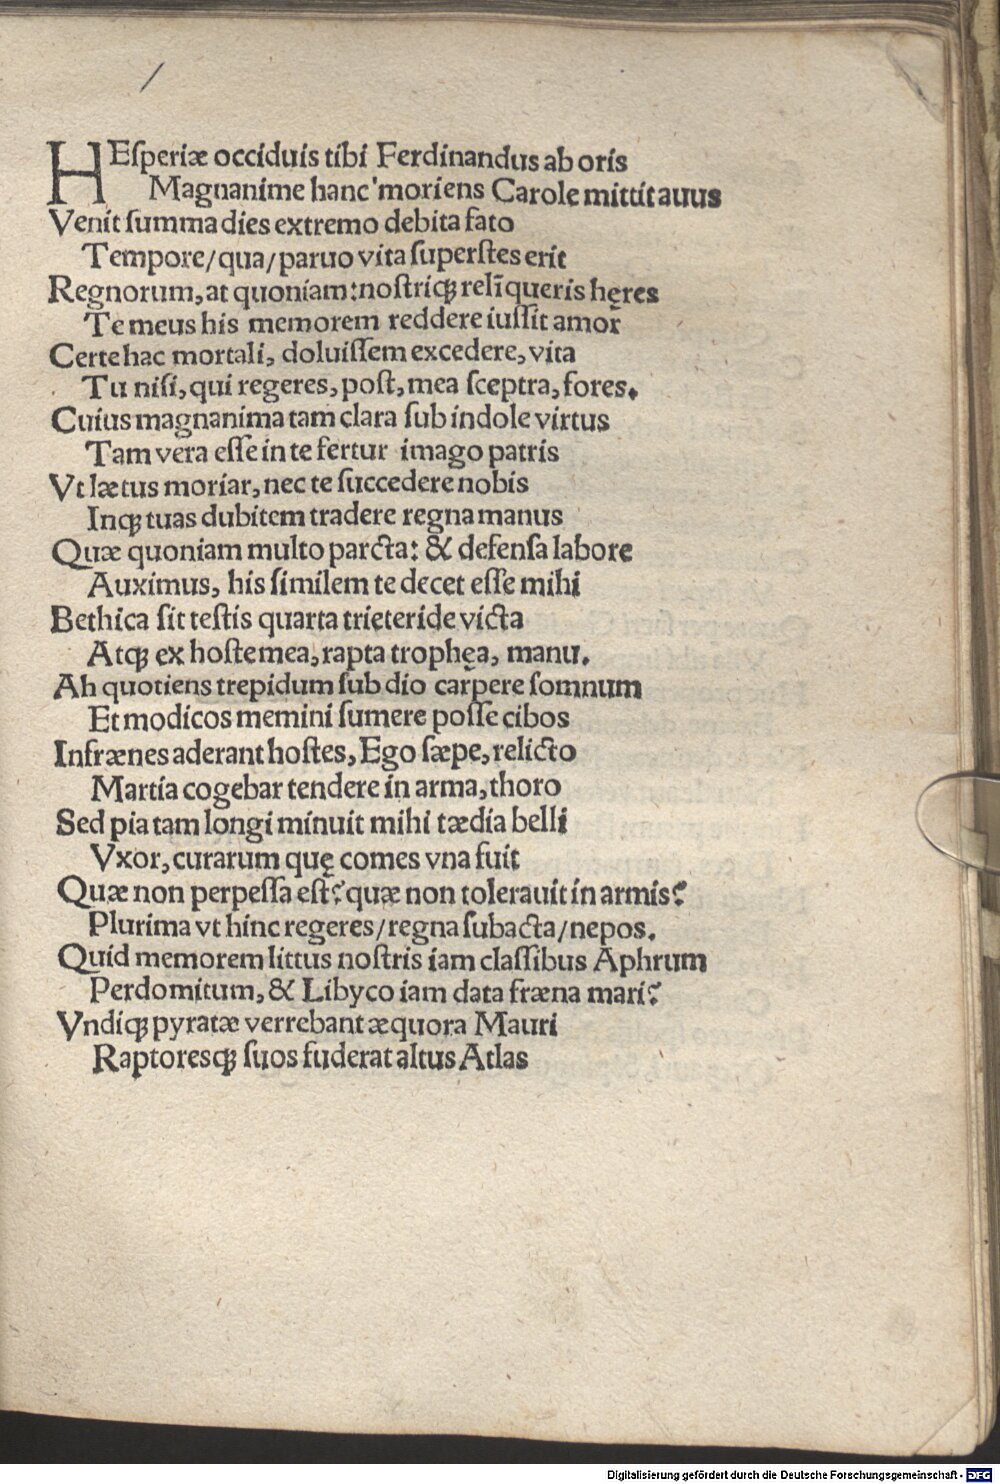 HEſperiæ occiduis tibi Ferdinandus ab oris
Magnanime hanc'moriens Carole mittit auus
Venit ſumma dies extremo debita fato
Tempore/qua/paruo vita ſuperſtes erit
Regnorum, at quoniam: noſtriqꝫ relīqueris hęres
Te meus his memorem reddere iuſſit amor
Certe hac mortali, doluiſſem excedere, vita
Tu niſi, qui regeres, poſt, mea ſceptra, fores.
Cuius magnanima tam clara ſub indole virtus
Tam vera eſſe in te fertur imago patris
Vt lætus moriar, nec te ſuccedere nobis
Inqꝫ tuas dubitem tradere regna manus
Quæ quoniam multo parcta: & defenſa labore
Auximus, his ſimilem te decet eſſe mihi
Bethica ſit teſtis quarta trieteride victa
Atqꝫ ex hoſte mea, rapta trophęa, manu.
Ah quotiens trepidum ſub dio carpere ſomnum
Et modicos memini ſumere poſſe cibos
Infrænes aderant hoſtes, Ego ſæpe, relicto
Martia cogebar tendere in arma, thoro
Sed pia tam longi minuit mihi tædia belli
Vxor, curarum quę comes vna fuit
Quæ non perpeſſa eſt? quæ non tolerauit in armis?
Plurima vt hinc regeres/regna ſubacta/nepos.
Quid memorem littus noſtris iam claſſibus Aphrum
Perdomitum, & Libyco iam data fræna mari?
Vndiqꝫ pyratæ verrebant æquora Mauri
Raptoresqꝫ ſuos fuderat altus Atlas
Digitalisierung gefördert durch die Deutsche Forschungsgemeinschaft - DFG